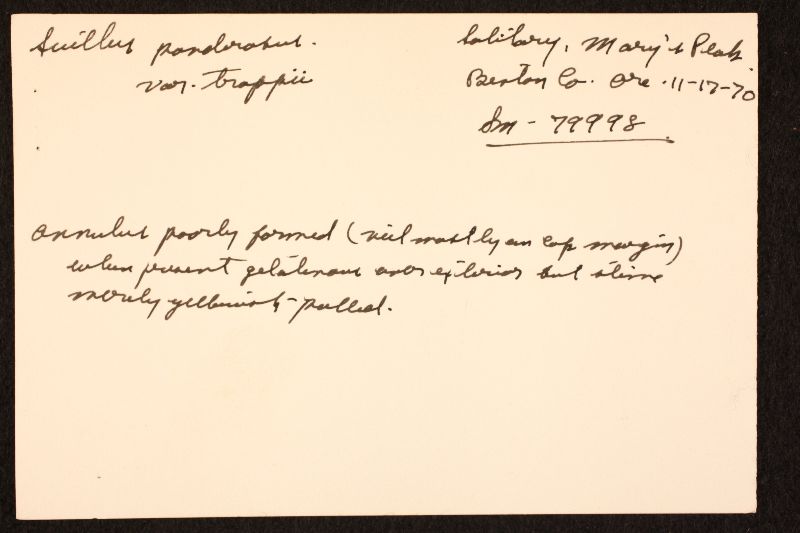 Suillus ponderosus.
var. trappii
Solitary, Mary's Peak.
Benton Co. Ore. 11-17-70
Sm - 79998
annulus poorly formed (veil mostly on cap margin)
when present gelatinous over exterior but slime
merely yellowish-pallid.